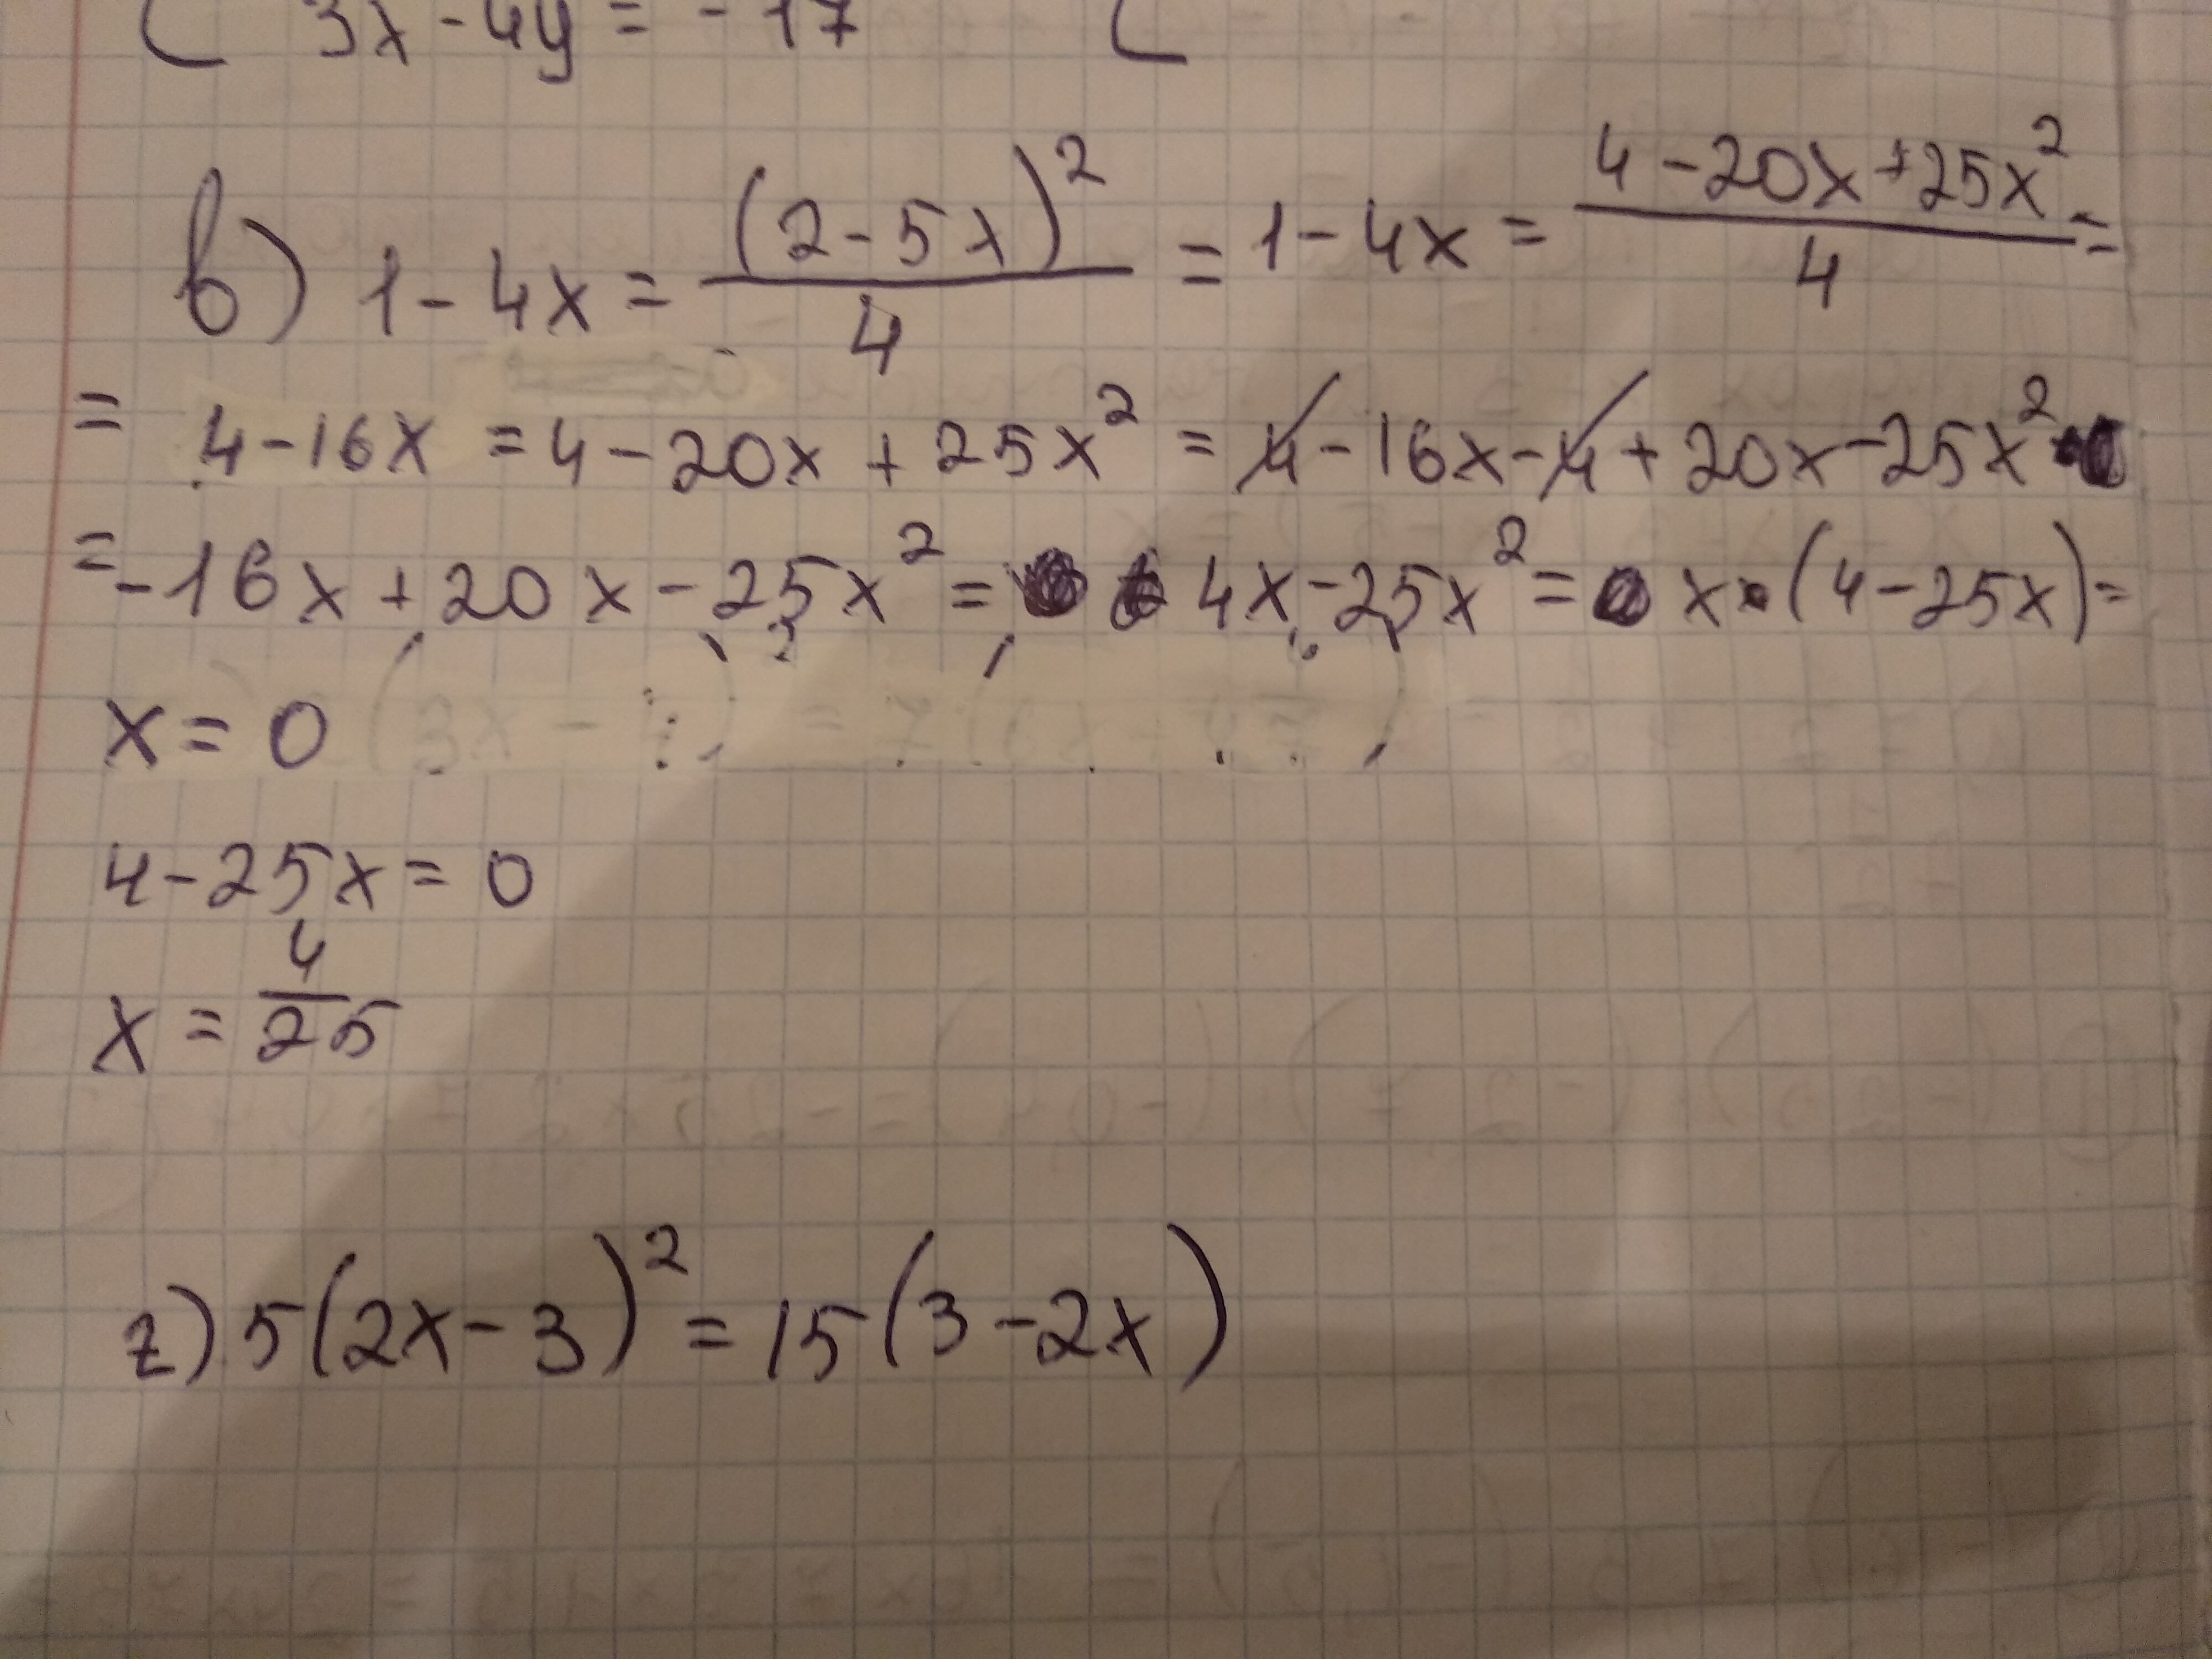 3x - 4y = - 17
в) 1 - 4x = (2 - 5x)² / 4 = 1 - 4x = (4 - 20x + 25x²) / 4 =
= 4 - 16x = 4 - 20x + 25x² = 4 - 16x - 4 + 20x - 25x²
= - 16x + 20x - 25x² = 4x - 25x² = x · (4 - 25x) =
x = 0
4 - 25x = 0
x = 4/25
г) 5(2x - 3)² = 15(3 - 2x)